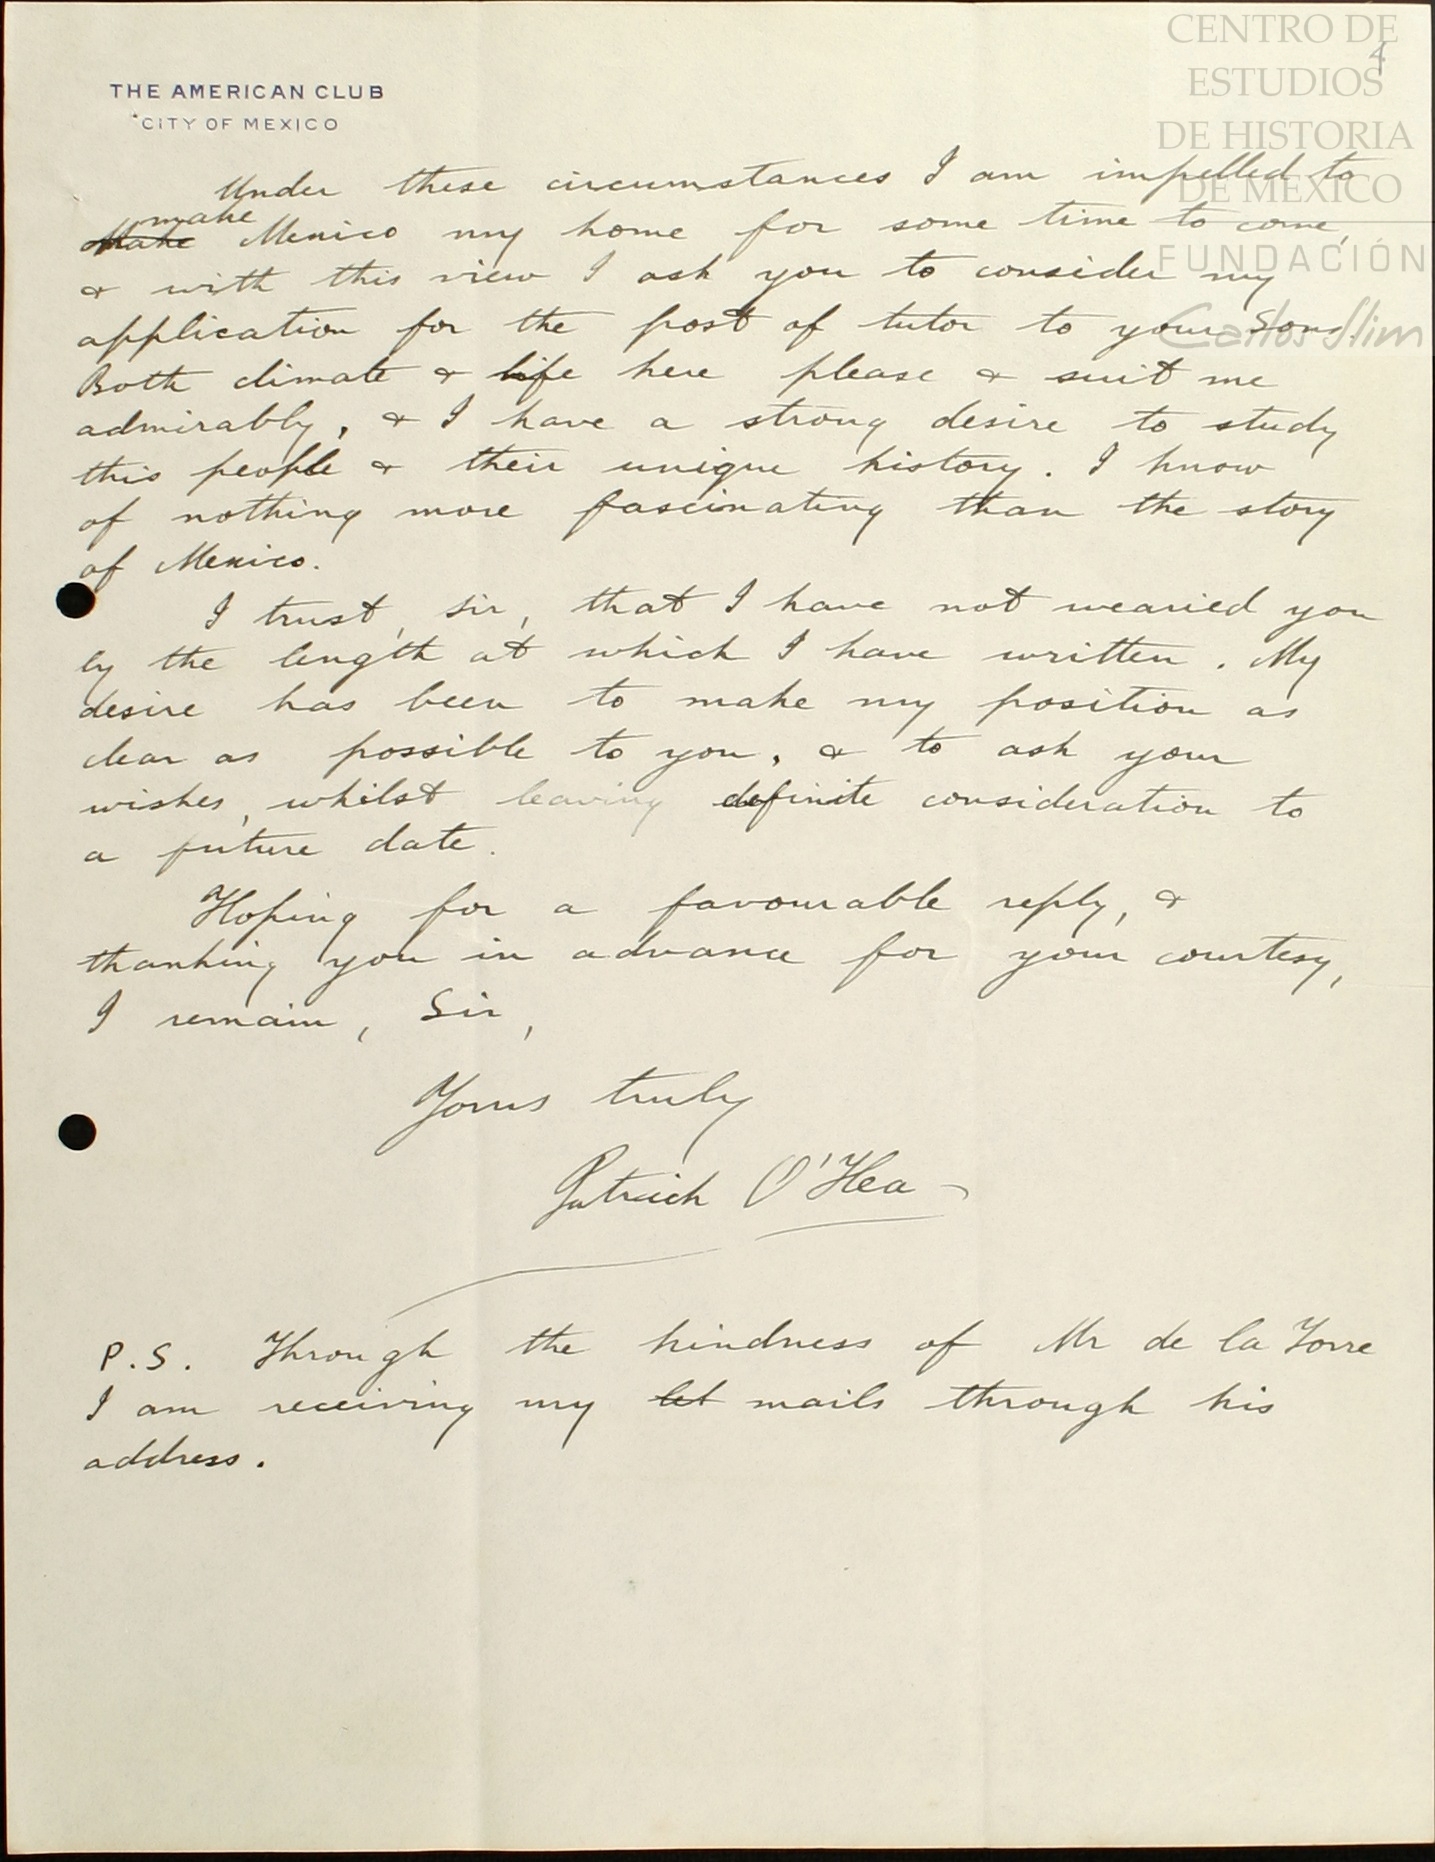 CENTRO DE
ESTUDIOS
DE HISTORIA
DE MEXICO
FUNDACIÓN
Carlos Slim
4
THE AMERICAN CLUB
CITY OF MEXICO
Under these circumstances I am impelled to
make
Make Mexico my home for some time to come,
& with this view I ask you to consider my
application for the post of tutor to your sons.
Both climate & life here please & suit me
admirably, & I have a strong desire to study
this people & their unique history. I know
of nothing more fascinating than the story
of Mexico.
I trust, sir, that I have not wearied you
by the length at which I have written. My
desire has been to make my position as
clear as possible to you, & to ask your
wishes, whilst leaving definite consideration to
a future date.
Hoping for a favourable reply, &
thanking you in advance for your courtesy,
I remain, Sir,
Yours truly
Patrick O'Hea
P.S. Through the kindness of Mr de la Torre
I am receiving my let mails through his
address.